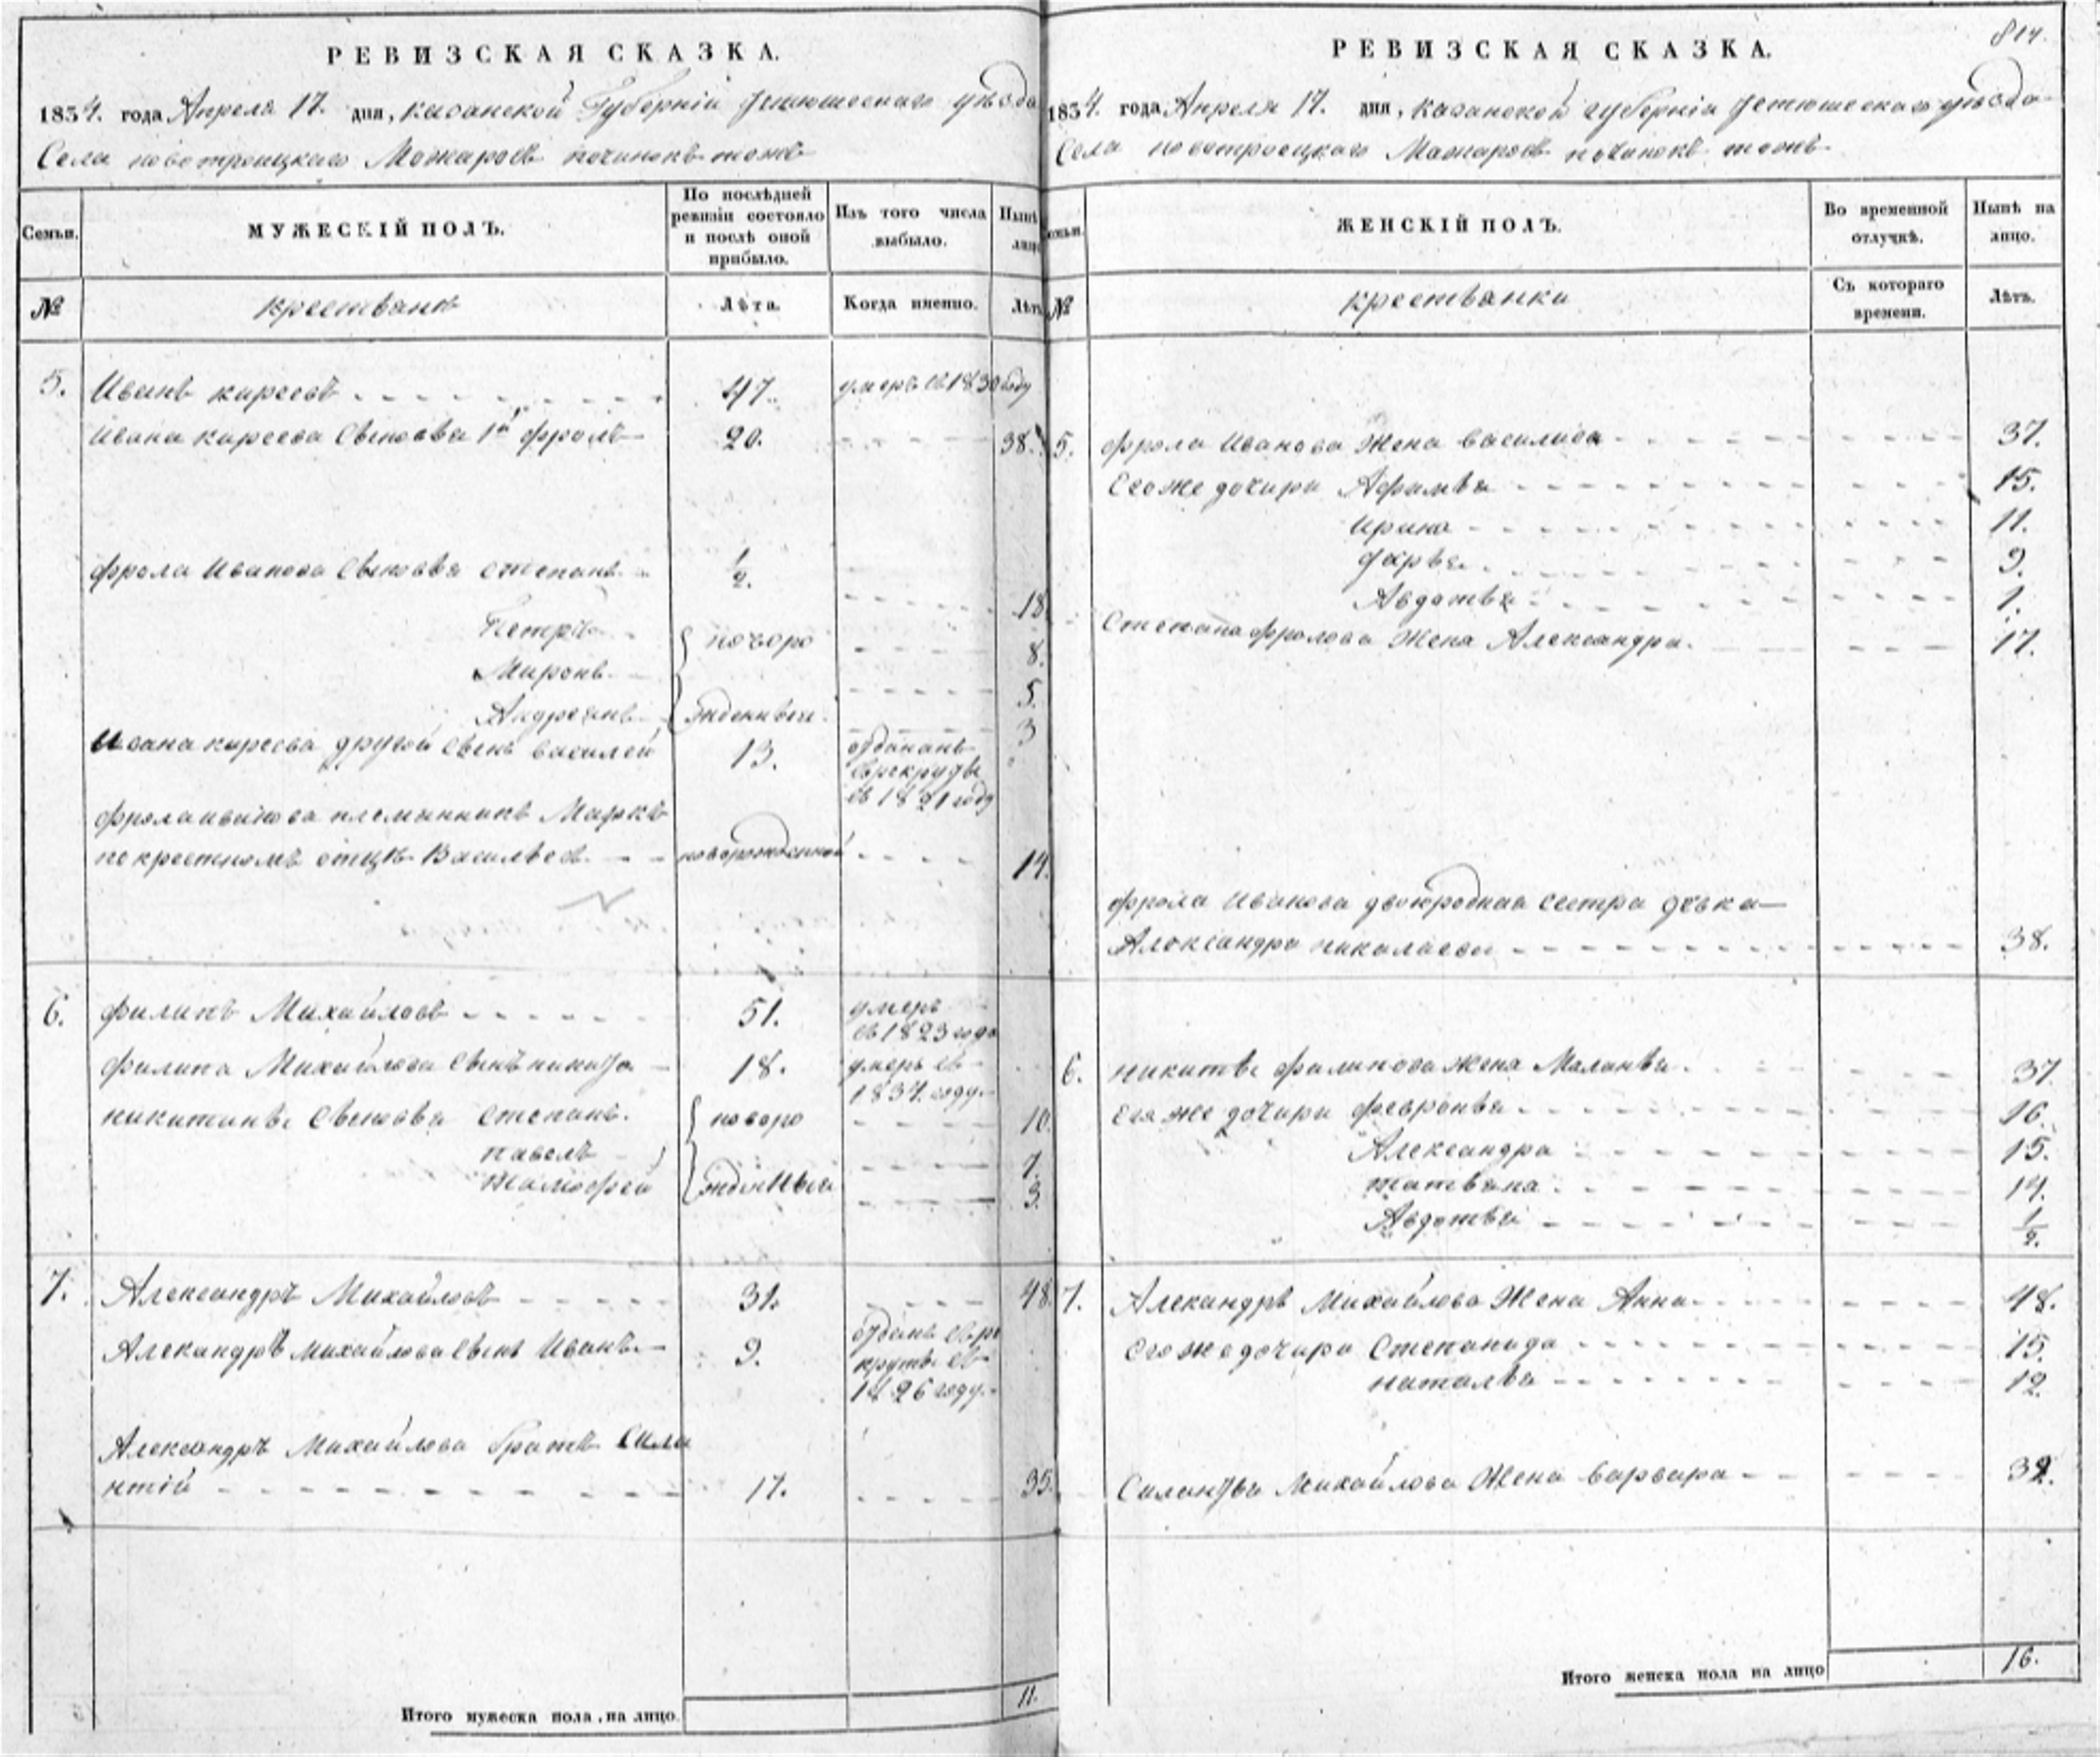 РЕВИЗСКАЯ СКАЗКА.
1834. года Апреля 17. дня, казанской Губерніи Тетюшескаго уѣзда
Села новотроицкаго Можаровъ починокъ тожъ
Семьи.
МУЖЕСКІЙ ПОЛЪ.
По послѣдней ревизіи состояло и послѣ оной прибыло.
Изъ того числа выбыло.
Нынѣ на лицо
№
крестьянъ
Лѣта.
Когда именно.
Лѣтъ
5. Иванъ киреевъ 47. умеръ въ 1830 году
Ивана киреева сыновья 1й фролъ 20. 38.
фрола Иванова сыновья степанъ 1/2. 18.
Петръ новоро 8.
Миронъ 5.
Андреянъ жденныи 3
Ивана киреева другой сынъ василей 13. отданъ
врекруты
въ 1821 году
фрола иванова племянникъ Маркъ
по крестномъ отцѣ Васильевъ новорожденный 14.
6. филипъ Михайловъ 51. умеръ
въ 1823 годо
филипа Михайлова сынъ никита 18. умеръ въ
1834. году
никитины сыновья степанъ. новоро 10.
павелъ 7.
тимофей жденныи 3.
7. Александръ Михайловъ 31. 48.
Александръ михайлова сынъ Иванъ 9. отданъ въ ре
круты въ
1826 году.
Александръ Михайлова братъ Сила
нтій 17. 35.
Итого мужеска пола на лицо 11.
814.
РЕВИЗСКАЯ СКАЗКА.
1834. года Апреля 17. дня, казанской губерніи Тетюшескаго уѣзда
Села новотроецкаго Можаровъ починокъ тожъ
Семьи.
ЖЕНСКІЙ ПОЛЪ.
Во временной отлучкѣ.
Нынѣ на лицо.
№
крестьянки
Съ котораго времени.
Лѣтъ.
5. фрола Иванова жена василиса 37.
Его же дочири Афимья 15.
Ирина 11.
Дарья 9.
Авдотья 1.
Степана фролова жена Александра. 17.
фрола Иванова двоюродная сестра девка
Александра николаева 38.
6. никиты филипова жена Маланья. 37
Его же дочири февронья 16.
Александра 15.
татьяна 14.
Авдотья 1/2.
7. Алекандръ Михайлова жена Анна 48.
Его же дочири Степанида 15.
наталья 12
Силантья Михайлова жена варвара 32.
Итого женска пола на лицо 16.